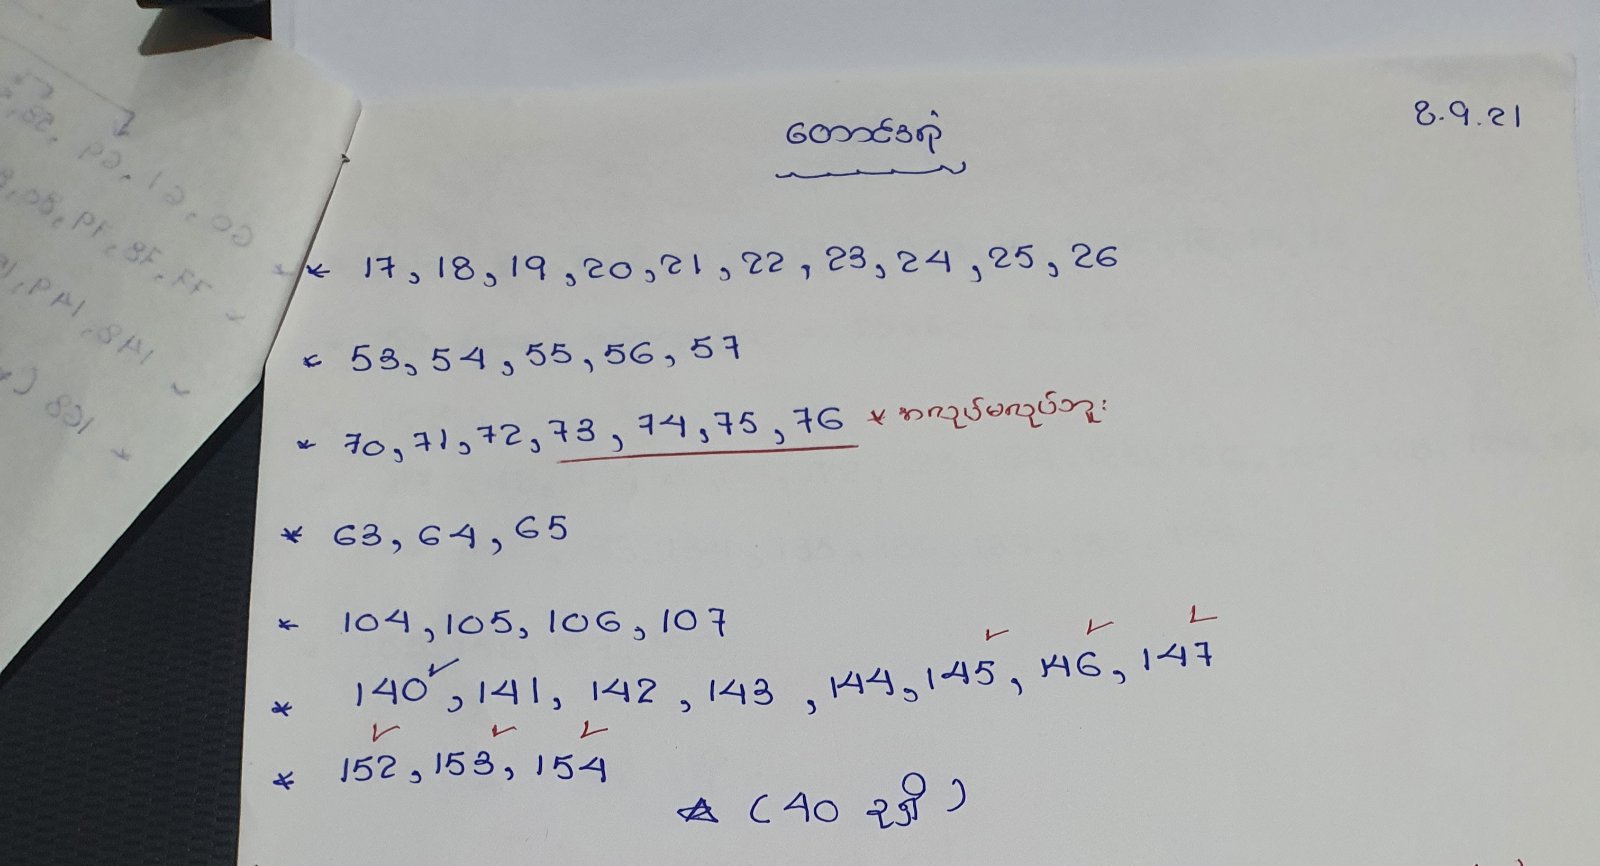 8.9.21
တောင်ဒဂုံ
* 17, 18, 19, 20, 21, 22, 23, 24, 25, 26
* 53, 54, 55, 56, 57
* 70, 71, 72, 73, 74, 75, 76 * အလုပ်မလုပ်ဘူး
* 63, 64, 65
* 104, 105, 106, 107
* 140✓, 141, 142, 143, 144, 145✓, 146✓, 147✓
* 152✓, 153✓, 154✓
☆ (40 ခုရှိ)